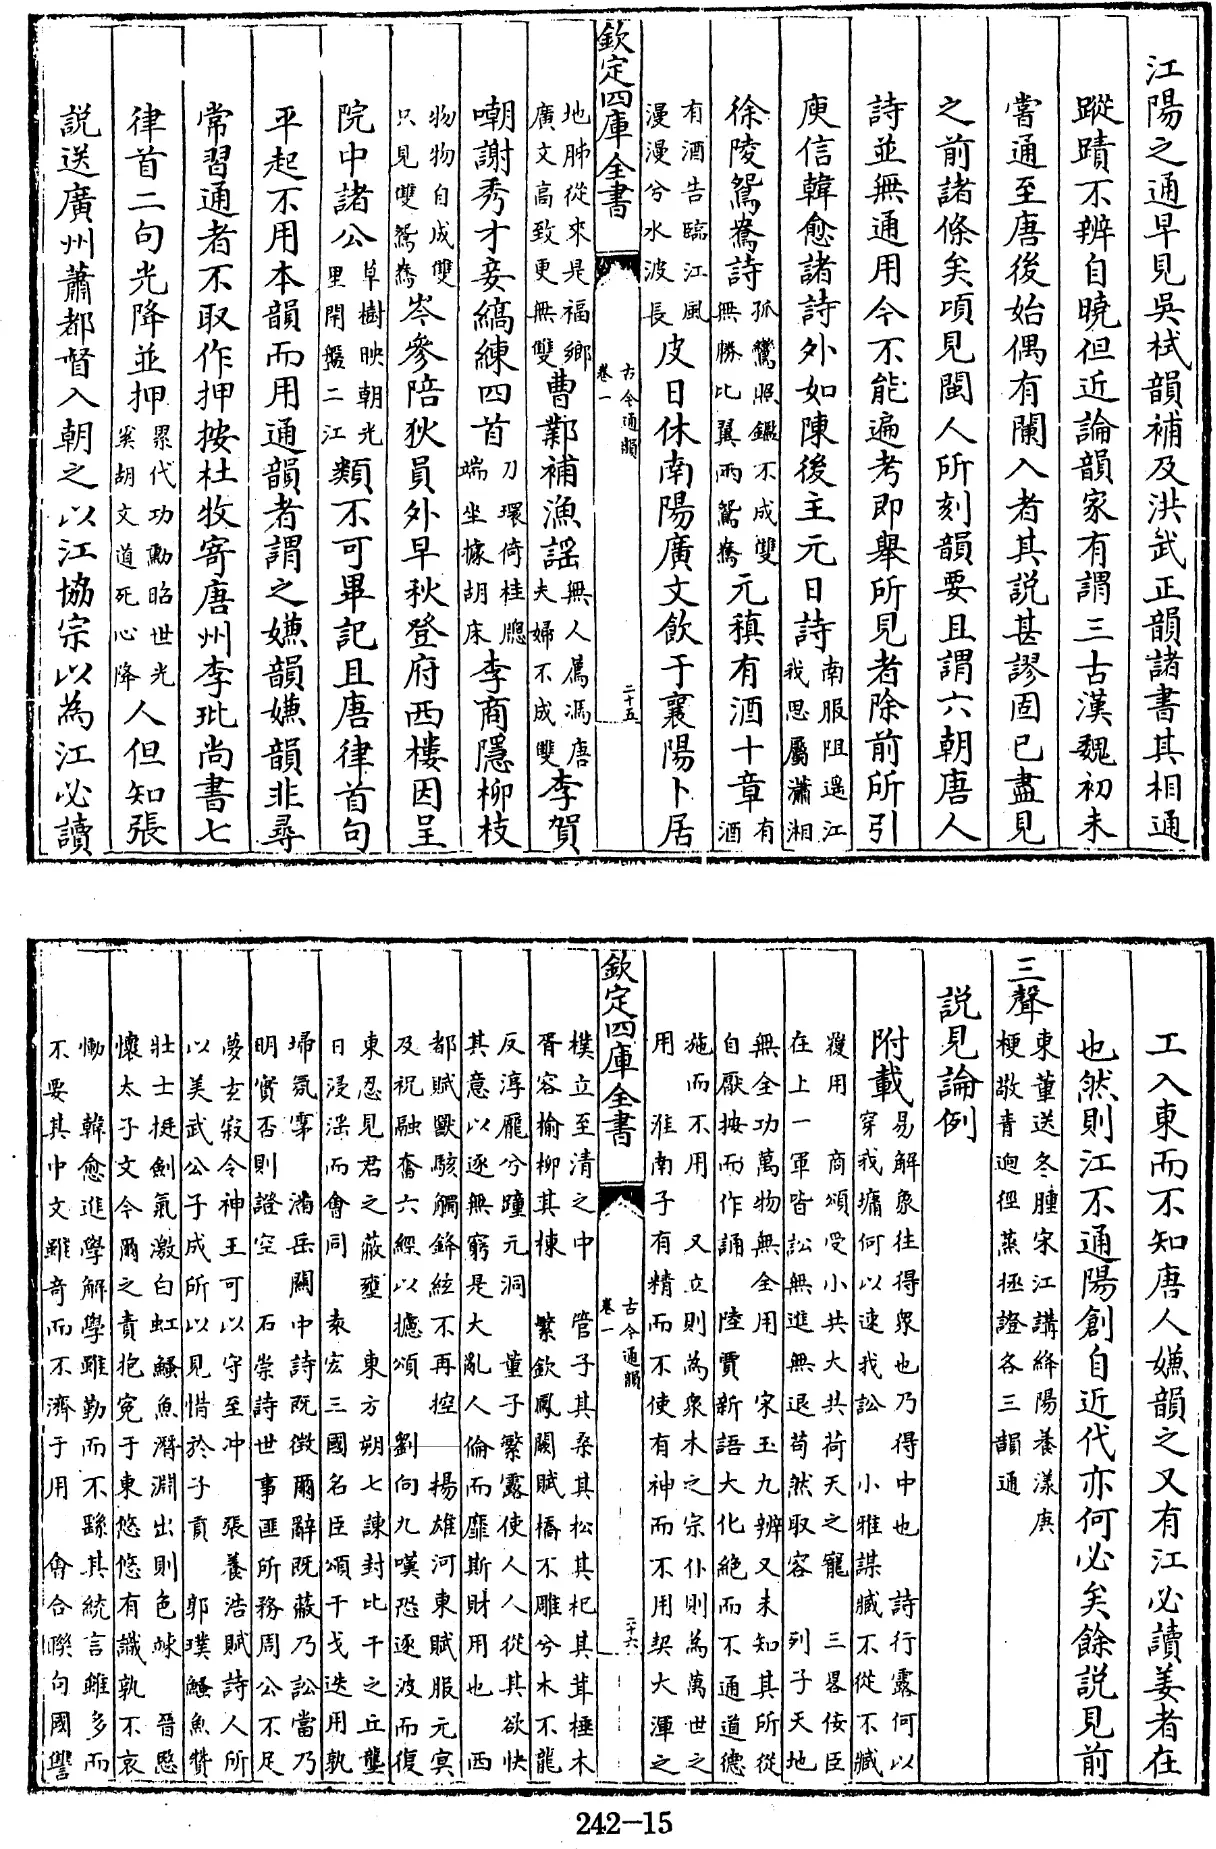 江陽之通早見吳棫韻補及洪武正韻諸書其相通
蹤蹟不辨自曉但近論韻家有謂三古漢魏初未
嘗通至唐後始偶有闌入者其説甚謬固已盡見
之前諸條矣項見閩人所刻韻要且謂六朝唐人
詩並無通用今不能遍考即舉所見者除前所引
庾信韓愈諸詩外如陳後主元日詩南服阻遥江
我思屬瀟湘
徐陵鴛鴦詩孤鸞照鑑不成雙
無勝比翼兩鴛鴦元稹有酒十章有
酒
有酒告臨江風
漫漫兮水波長皮日休南陽廣文飲于襄陽卜居
欽定四庫全書
古今通韻
卷一
二十五
地肺從來是福鄉
廣文高致更無雙曹鄴補漁謡無人厲馮唐
夫婦不成雙李賀
嘲謝秀才妾縞練四首刀環倚桂牕
端坐據胡床李商隱柳枝
物物自成雙
只見雙鴛鴦岑參陪狄員外早秋登府西樓因呈
院中諸公草樹映朝光
里閈盤二江類不可畢記且唐律首句
平起不用本韻而用通韻者謂之嫌韻嫌韻非尋
常習通者不取作押按杜牧寄唐州李玭尚書七
律首二句光降並押累代功勳昭世光
奚胡文道死心降人但知張
説送廣州蕭都督入朝之以江協宗以為江必讀
工入東而不知唐人嫌韻之又有江必讀姜者在
也然則江不通陽創自近代亦何必矣餘説見前
三聲東董送冬腫宋江講絳陽養漾庚
梗敬青迥徑蒸拯證各三韻通
説見論例
附載易解象往得衆也乃得中也 詩行露何以
穿我墉何以速我訟 小雅謀臧不從不臧
覆用 商頌受小共大共荷天之寵 三畧佞臣
在上一軍皆訟無進無退苟然取容 列子天地
無全功萬物無全用 宋玉九辨又未知其所從
自厭按而作誦 陸賈新語大化絶而不通道德
施而不用 又立則為衆木之宗仆則為萬世之
用 淮南子有精而不使有神而不用契大渾之
欽定四庫全書
古今通韻
卷一
二十六
樸立至清之中 管子其桑其松其杞其茸種木
胥容榆柳其棟 繁欽鳳闕賦橋不雕兮木不龍
反淳龐兮踵元洞 董子繁露使人人從其欲快
其意以逐無窮是大亂人倫而靡斯財用也 西
都賦獸駭觸鋒絃不再控 楊雄河東賦服元冥
及祝融奮六經以攄頌 劉向九嘆恐逐波而復
東忍見君之蔽壅 東方朔七諫封比干之丘壟
日浸淫而會同 袁宏三國名臣頌干戈迭用孰
埽氛雺 潘岳關中詩既徴爾辭既蔽乃訟當乃
明實否則證空 石崇詩世事匪所務周公不足
夢玄寂令神王可以守至冲 張養浩賦詩人所
以美武公子成所以見惜於子貢 郭璞鱷魚贊
壯士挺劍氣激白虹鱷魚潛淵出則色悚 晉愍
懷太子文今爾之責抱寃于東悠悠有識孰不哀
慟 韓愈進學解學雖勤而不繇其統言雖多而
不要其中文雖奇而不濟于用 會合聯句國讐
242-15